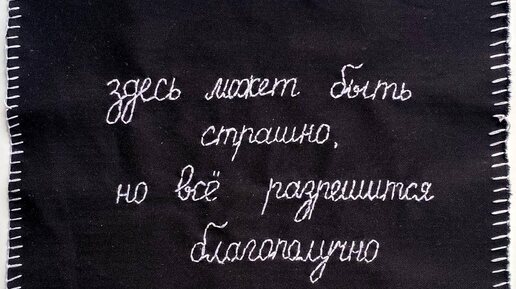 здесь может быть
страшно,
но всё разрешится
благополучно